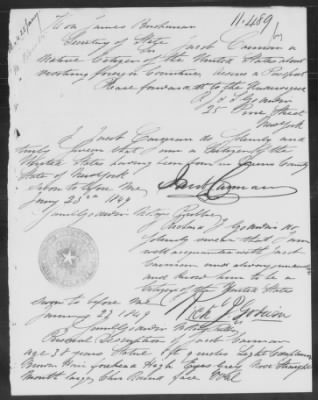 11.489
Hon James Buchanan
Secretary of State
Sir Jacob Carman a
Native Citizen of the United States about
visiting foreign Countries desires a Passport
Please forward it to the
25 Pine Street
New York
I Jacob Carman do Solemnly and
truly swear that I am a Citizen of the
United States having been born in Queens County
State of New York
Sworn to before me
Jany 23rd 1849
Jacob Carman
I Richard J Godwin do
Solemnly swear that I am
well acquainted with Jacob
Carman and
him to be a
citizen of the United States
Sworn to before me
January 23 1849
Rich J Godwin
Notary Public
Personal Description of Jacob Carman
age 38 years Stature 5 ft 9 inches Light Complexion
Brown Hair forehead High Eyes Grey Nose Straight
mouth large Chin Round face Oval